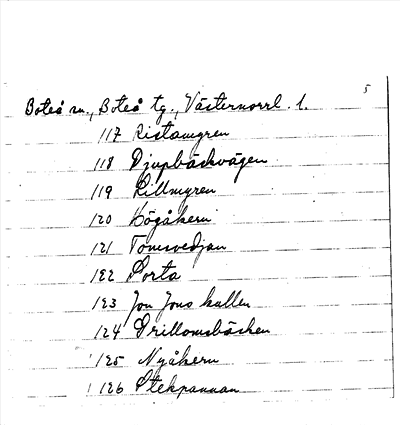 5
Boteå sn., Boteå tg., Västernorrl. l.
117 Ristamyren
118 Djupbäckvägen
119 Lillmyren
120 Högåkern
121 Tomsvedjan
122 Porta
123 Jon Jons kullen
124 Grillomsbäcken
125 Nyåkern
126 Stekpannan